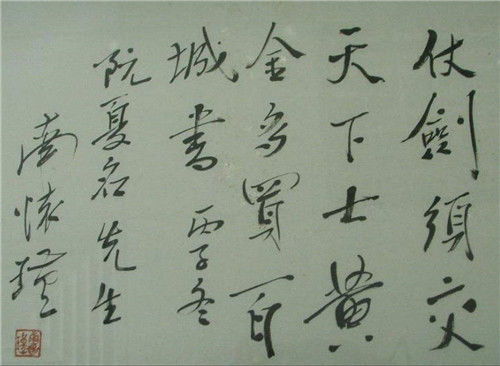 仗劍須交
天下士黃
金多買百
城書 丙子冬
阮夏名先生
南懷瑾